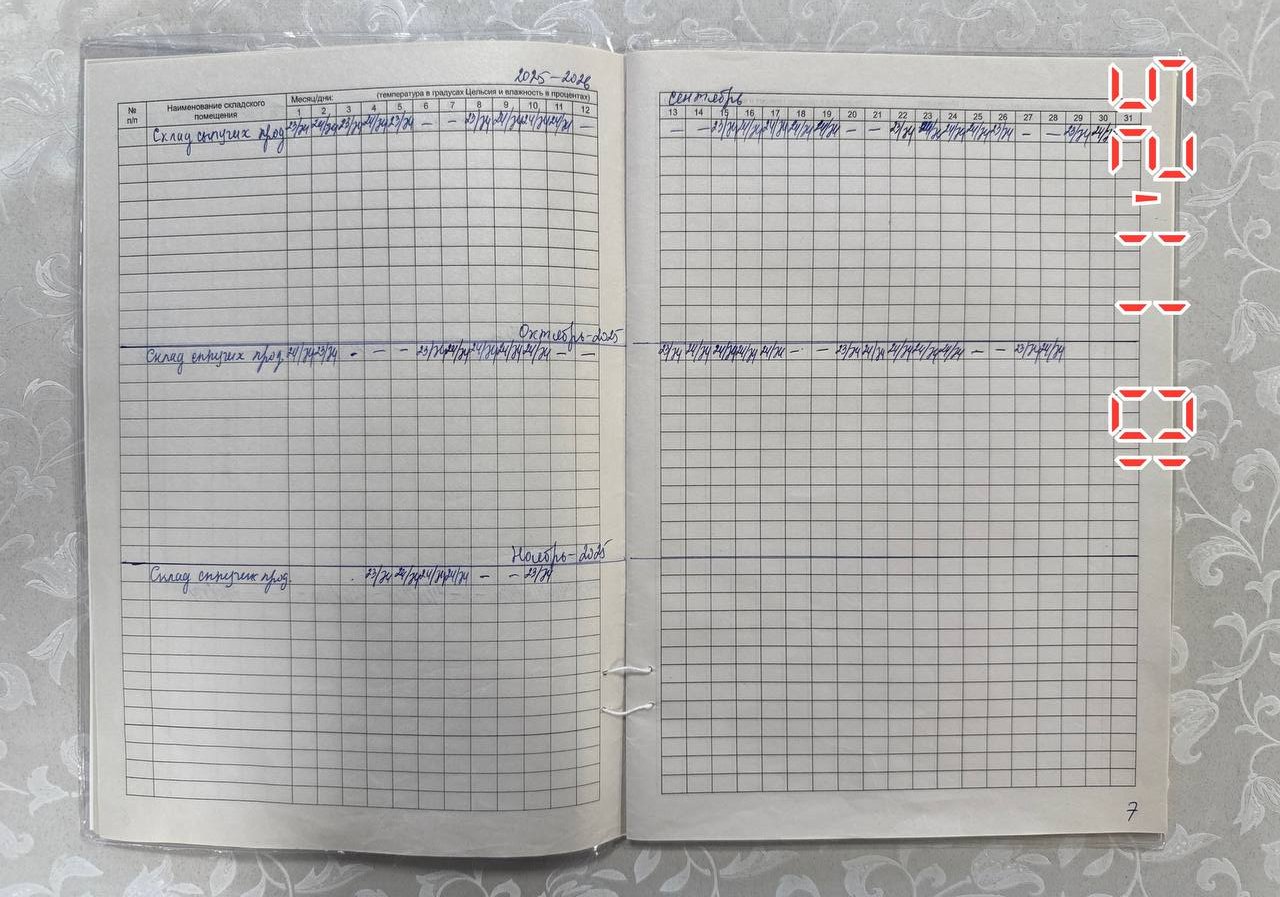 2025-2026
№ п/п Наименование складского помещения Месяц/дни: (температура в градусах Цельсия и влажность в процентах)
1 2 3 4 5 6 7 8 9 10 11 12
Склад сыпучих прод. 23/74 24/74 23/74 24/74 23/74 — — 23/74 24/74 24/74 24/74 —
Октябрь-2025
Склад сыпучих прод. 24/74 23/74 - — — 23/74 24/74 24/74 24/74 24/74 — —
Ноябрь-2025
Склад сыпучих прод. 23/74 24/74 24/74 24/74 — — 23/74
сентябрь
13 14 15 16 17 18 19 20 21 22 23 24 25 26 27 28 29 30 31
— — 23/74 24/74 24/74 24/74 24/74 — — 23/74 24/74 24/74 24/74 23/74 — — 23/74 24/74
23/74 24/74 24/74 24/74 24/74 - — 23/74 24/74 24/74 24/74 24/74 — — 23/74 24/74
7